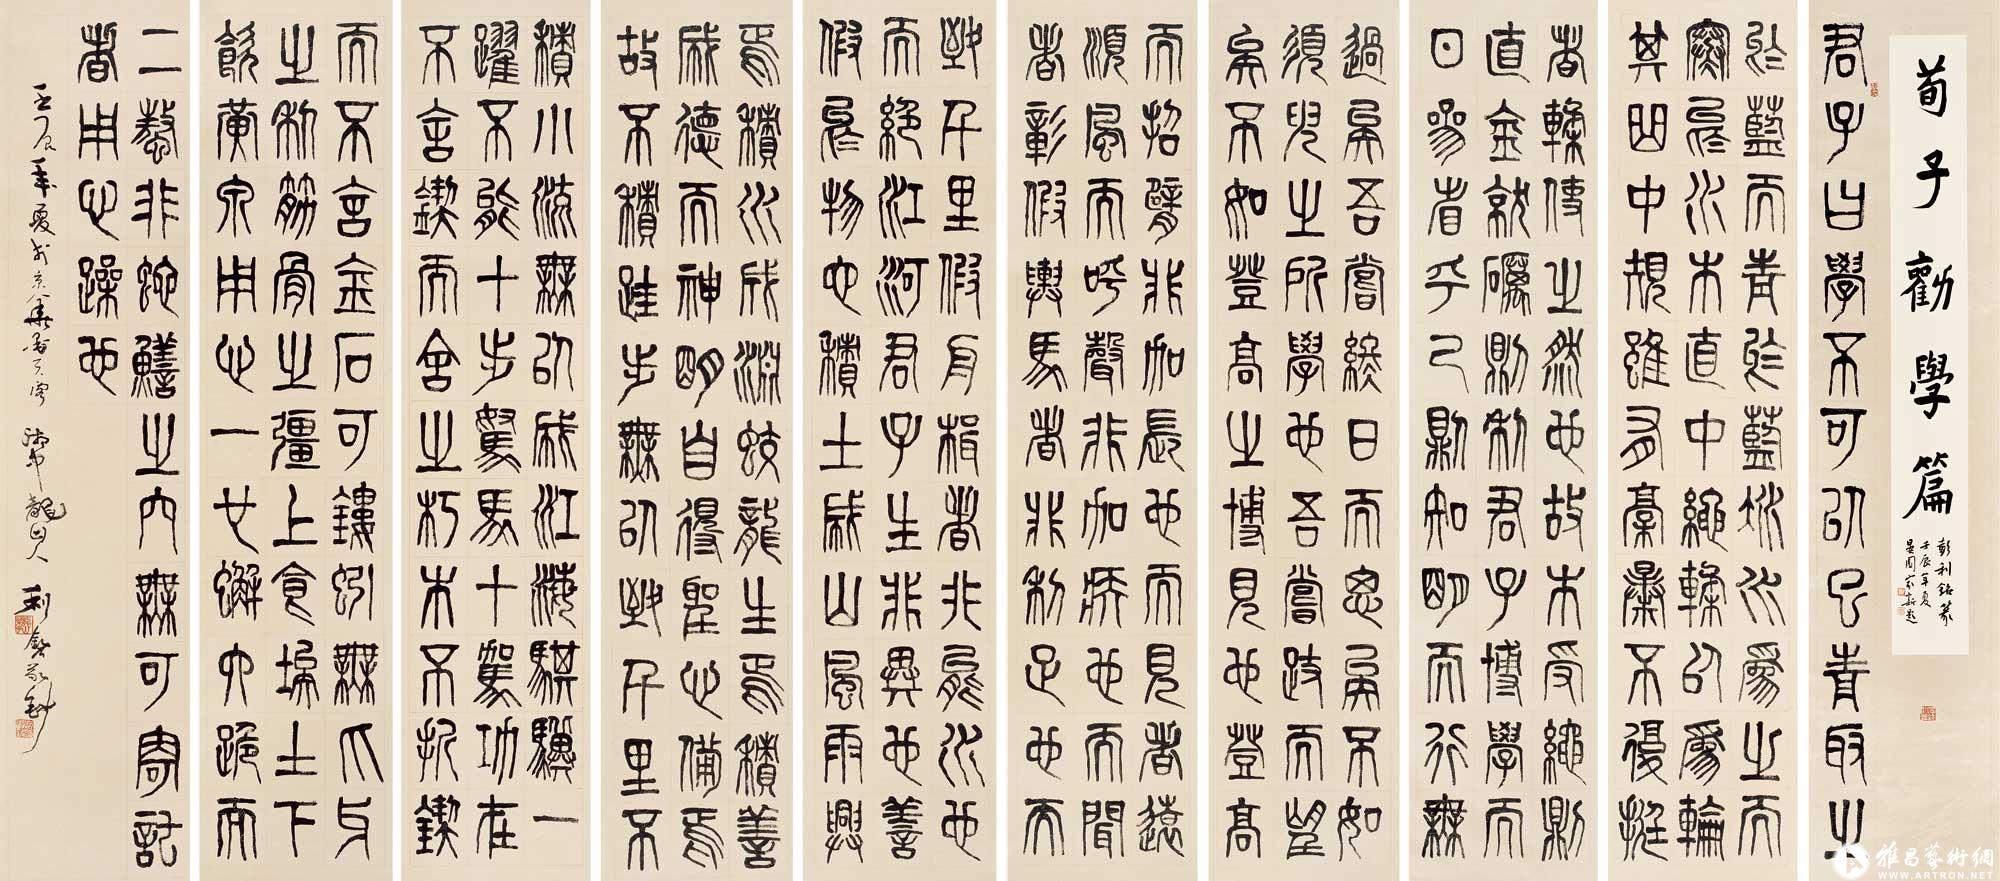 荀子勸學篇
彭利銘篆
壬辰年夏
君子曰學不可以已青取之
於藍而青於藍冰水爲之而
寒於水木直中繩輮以爲輪
其曲中規雖有槁暴不復挺
者輮使之然也故木受繩則
直金就礪則利君子博學而
日參省乎己則知明而行無
過矣吾嘗終日而思矣不如
須臾之所學也吾嘗跂而望
矣不如登高之博見也登高
而招臂非加長也而見者遠
順風而呼聲非加疾也而聞
者彰假輿馬者非利足也而
致千里假舟楫者非能水也
而絕江河君子生非異也善
假於物也積土成山風雨興
焉積水成淵蛟龍生焉積善
成德而神明自得聖心備焉
故不積跬步無以致千里不
積小流無以成江海騏驥一
躍不能十步駑馬十駕功在
不舍鍥而舍之朽木不折鍥
而不舍金石可鏤蚓無爪牙
之利筋骨之彊上食埃土下
飲黃泉用心一也蟹六跪而
二螯非蛇鱔之穴無可寄託
者用心躁也
壬辰年夏於京華 利銘
雅昌藝術網
WWW.ARTRON.NET